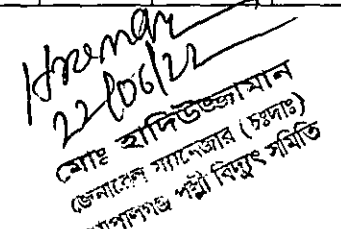 22/06/22
মোঃ হাদিউজ্জামান
জেনারেল ম্যানেজার (চঃদাঃ)
গোপালগঞ্জ পল্লী বিদ্যুৎ সমিতি